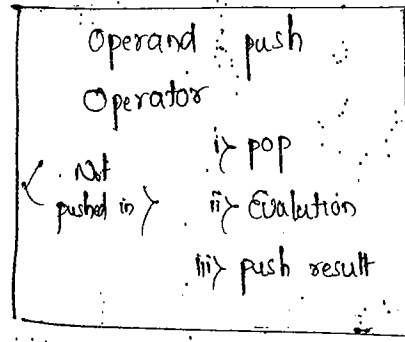 Operand : push
Operator
i> pop
< Not
pushed in > ii> Evalution
iii> push result